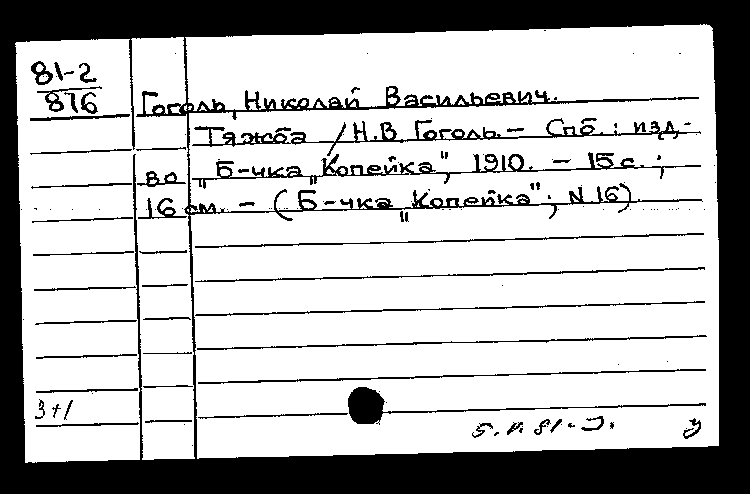 81-2
876
Гоголь, Николай Васильевич.
Тяжба / Н.В. Гоголь. – Спб. : изд-
во „Б-чка „Копейка", 1910. – 15 с. ;
16 см. – (Б-чка „Копейка"; N 16)
3+1